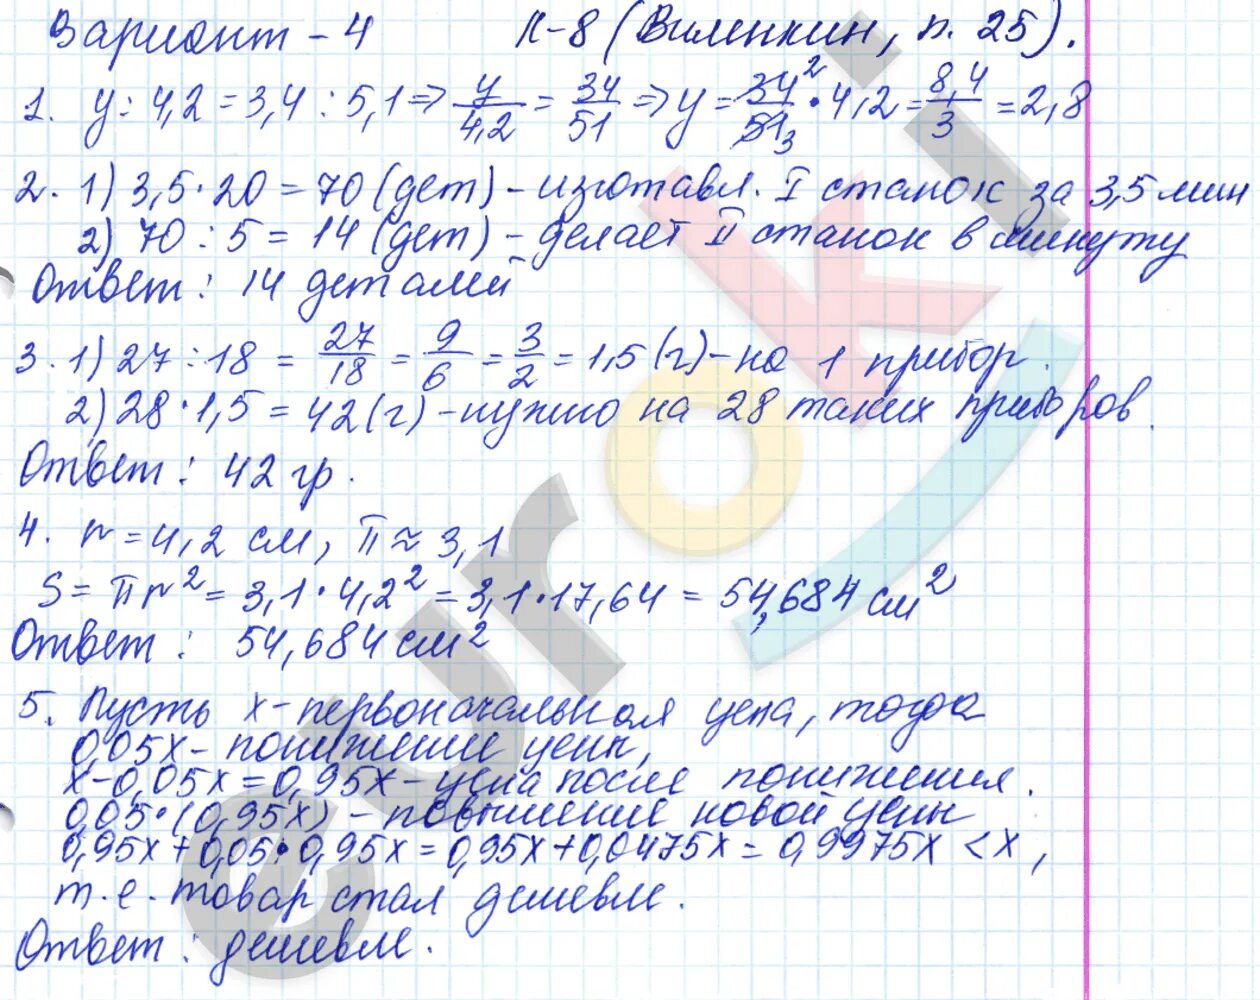 Вариант - 4 К-8 (Виленкин, п. 25).
1. y : 4,2 = 3,4 : 5,1 ⇒ y/4,2 = 34/51 ⇒ y = 34²/51₃ · 4,2 = 8,4/3 = 2,8
2. 1) 3,5 · 20 = 70 (дет) - изготавл. I станок за 3,5 мин
2) 70 : 5 = 14 (дет) - делает II станок в минуту
Ответ: 14 деталей
3. 1) 27 : 18 = 27/18 = 9/6 = 3/2 = 1,5 (г) - на 1 прибор.
2) 28 · 1,5 = 42 (г) - нужно на 28 таких приборов.
Ответ: 42 гр.
4. r = 4,2 см, π ≈ 3,1
S = πr² = 3,1 · 4,2² = 3,1 · 17,64 = 54,684 см²
Ответ: 54,684 см²
5. Пусть x - первоначальная цена, тогда
0,05x - понижение цены,
x - 0,05x = 0,95x - цена после понижения.
0,05 · (0,95x) - повышение новой цены
0,95x + 0,05 · 0,95x = 0,95x + 0,0475x = 0,9975x < x,
т.е. товар стал дешевле.
Ответ: дешевле.
euroki